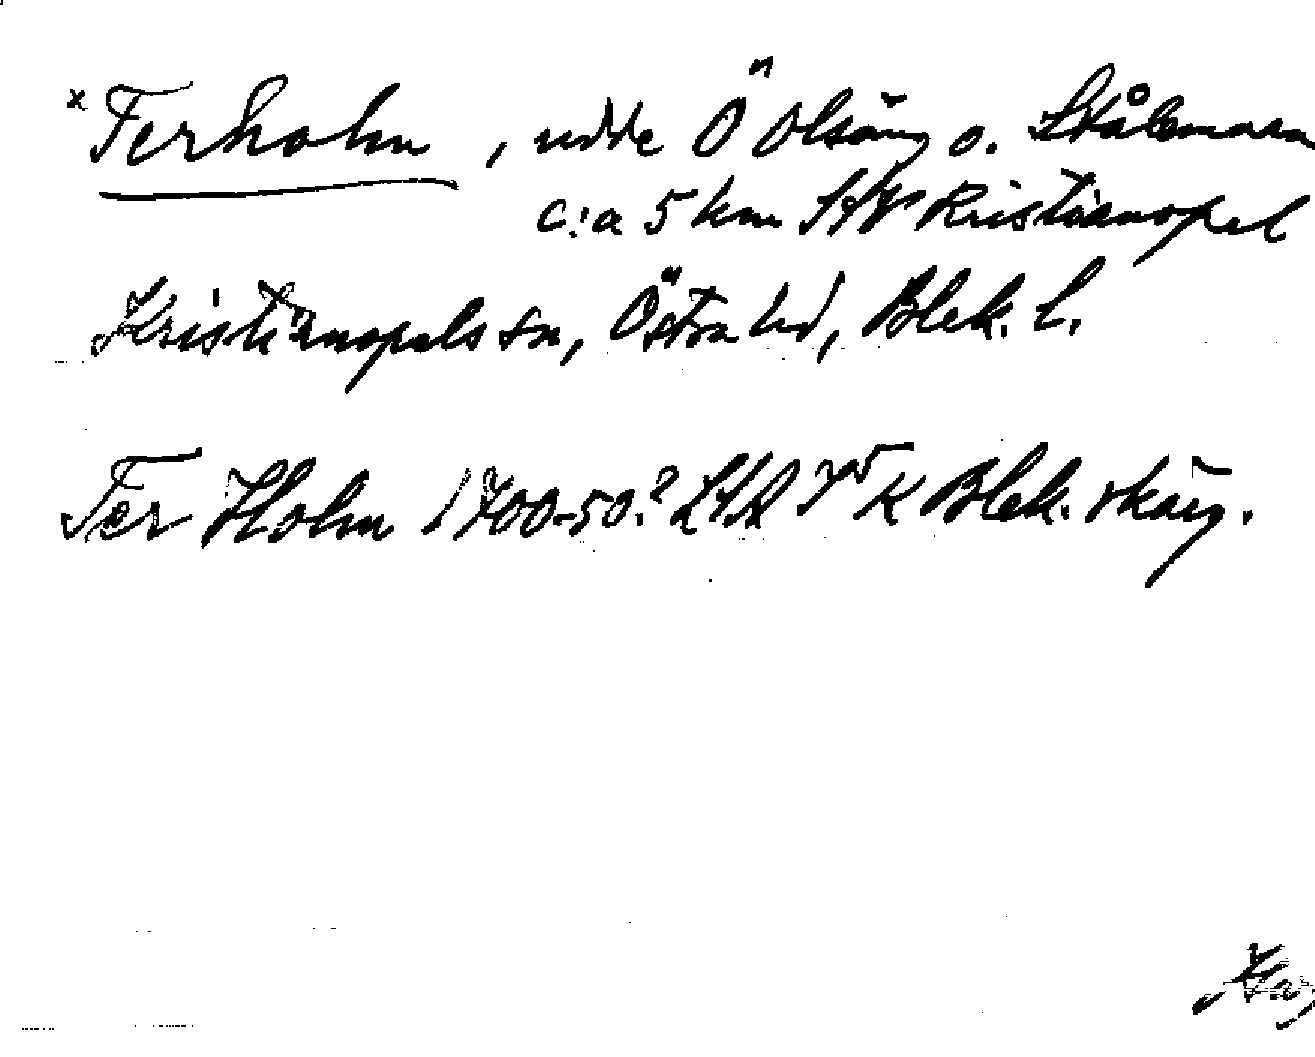 × Terholm, udde Ö Olsäng o. Stålemara
c:a 5 km SSV Kristianopel
Kristianopels sn, Östra hd, Blek. l.
Ter Holm 1700-50? K Blek. skärg.